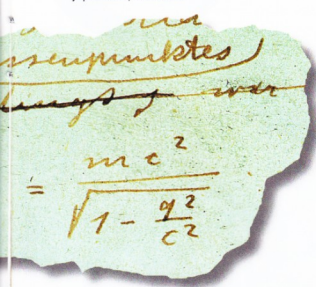 ssenpunktes)
war
= \frac{mc^2}{\sqrt{1 - \frac{q^2}{c^2}}}